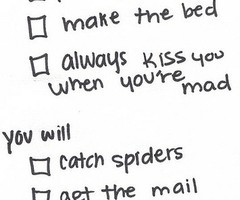 make the bed
always kiss you
when you're mad
you will
catch spiders
get the mail